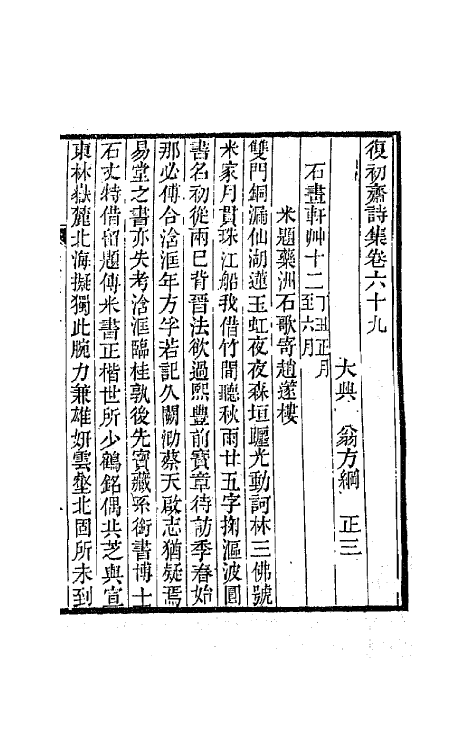 復初齋詩集卷六十九
大興 翁方綱 正三
石畫軒艸十二丁丑正月至六月
米題藥洲石歌寄趙蓬樓
雙門銅漏仙湖蓮玉虹夜夜森垣躔光動訶林三佛號
米家月貫珠江船我借竹間聽秋雨廿五字掬漚波圓
書名初從兩巳背晉法欲過熙豐前寶章待訪季春始
那必傅合浛洭年方孚若記久闕泐蔡天啟志猶疑焉
易堂之書亦失考浛洭臨桂孰後先寶藏系銜書博士
石丈特借留題傳米書正楷世所少鶴銘偶共芝與宣
東林嶽麓北海擬獨此腕力兼雄妍雲壑北固所未到